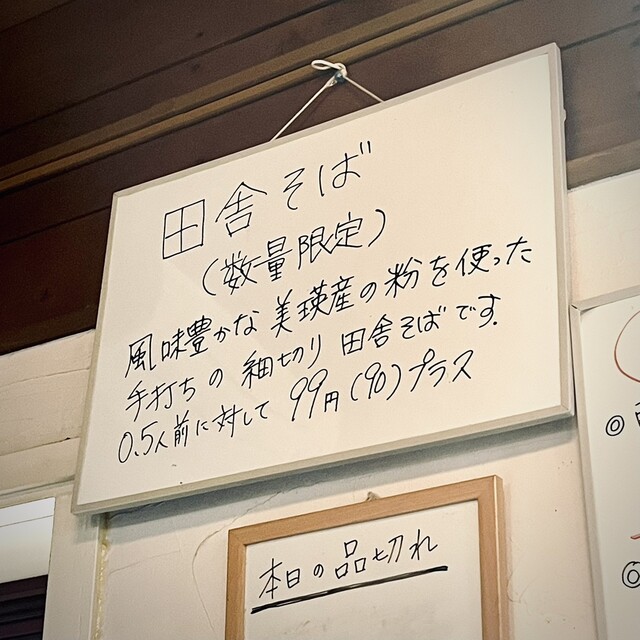 田舎そば
(数量限定)
風味豊かな美瑛産の粉を使った
手打ちの細切り田舎そばです.
0.5人前に対して99円(90)プラス
本日の品切れ
◎
◎